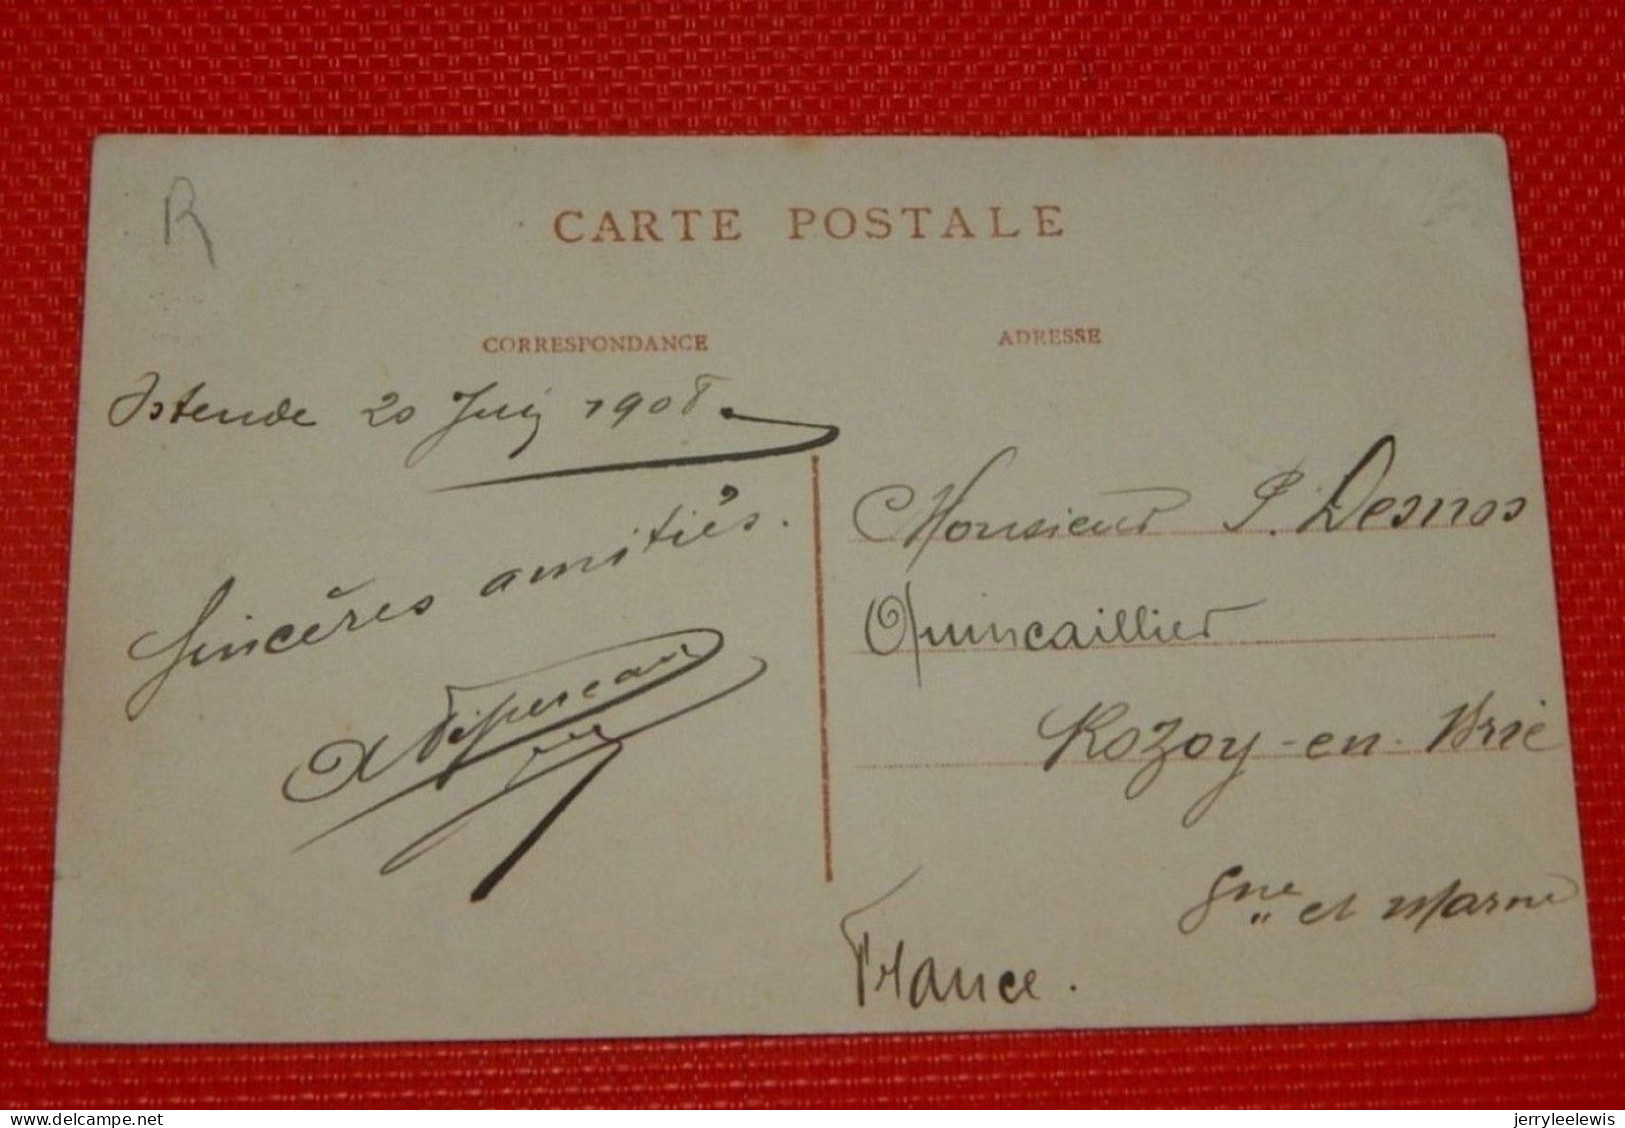 R
CARTE POSTALE
CORRESPONDANCE
Ostende 20 Juin 1908
Sincères amitiés.
ADRESSE
Monsieur P. Desnos
Quincaillier
Rozoy-en-Brie
Sne et Marne
France.
delcampe.net
jerryleelewis